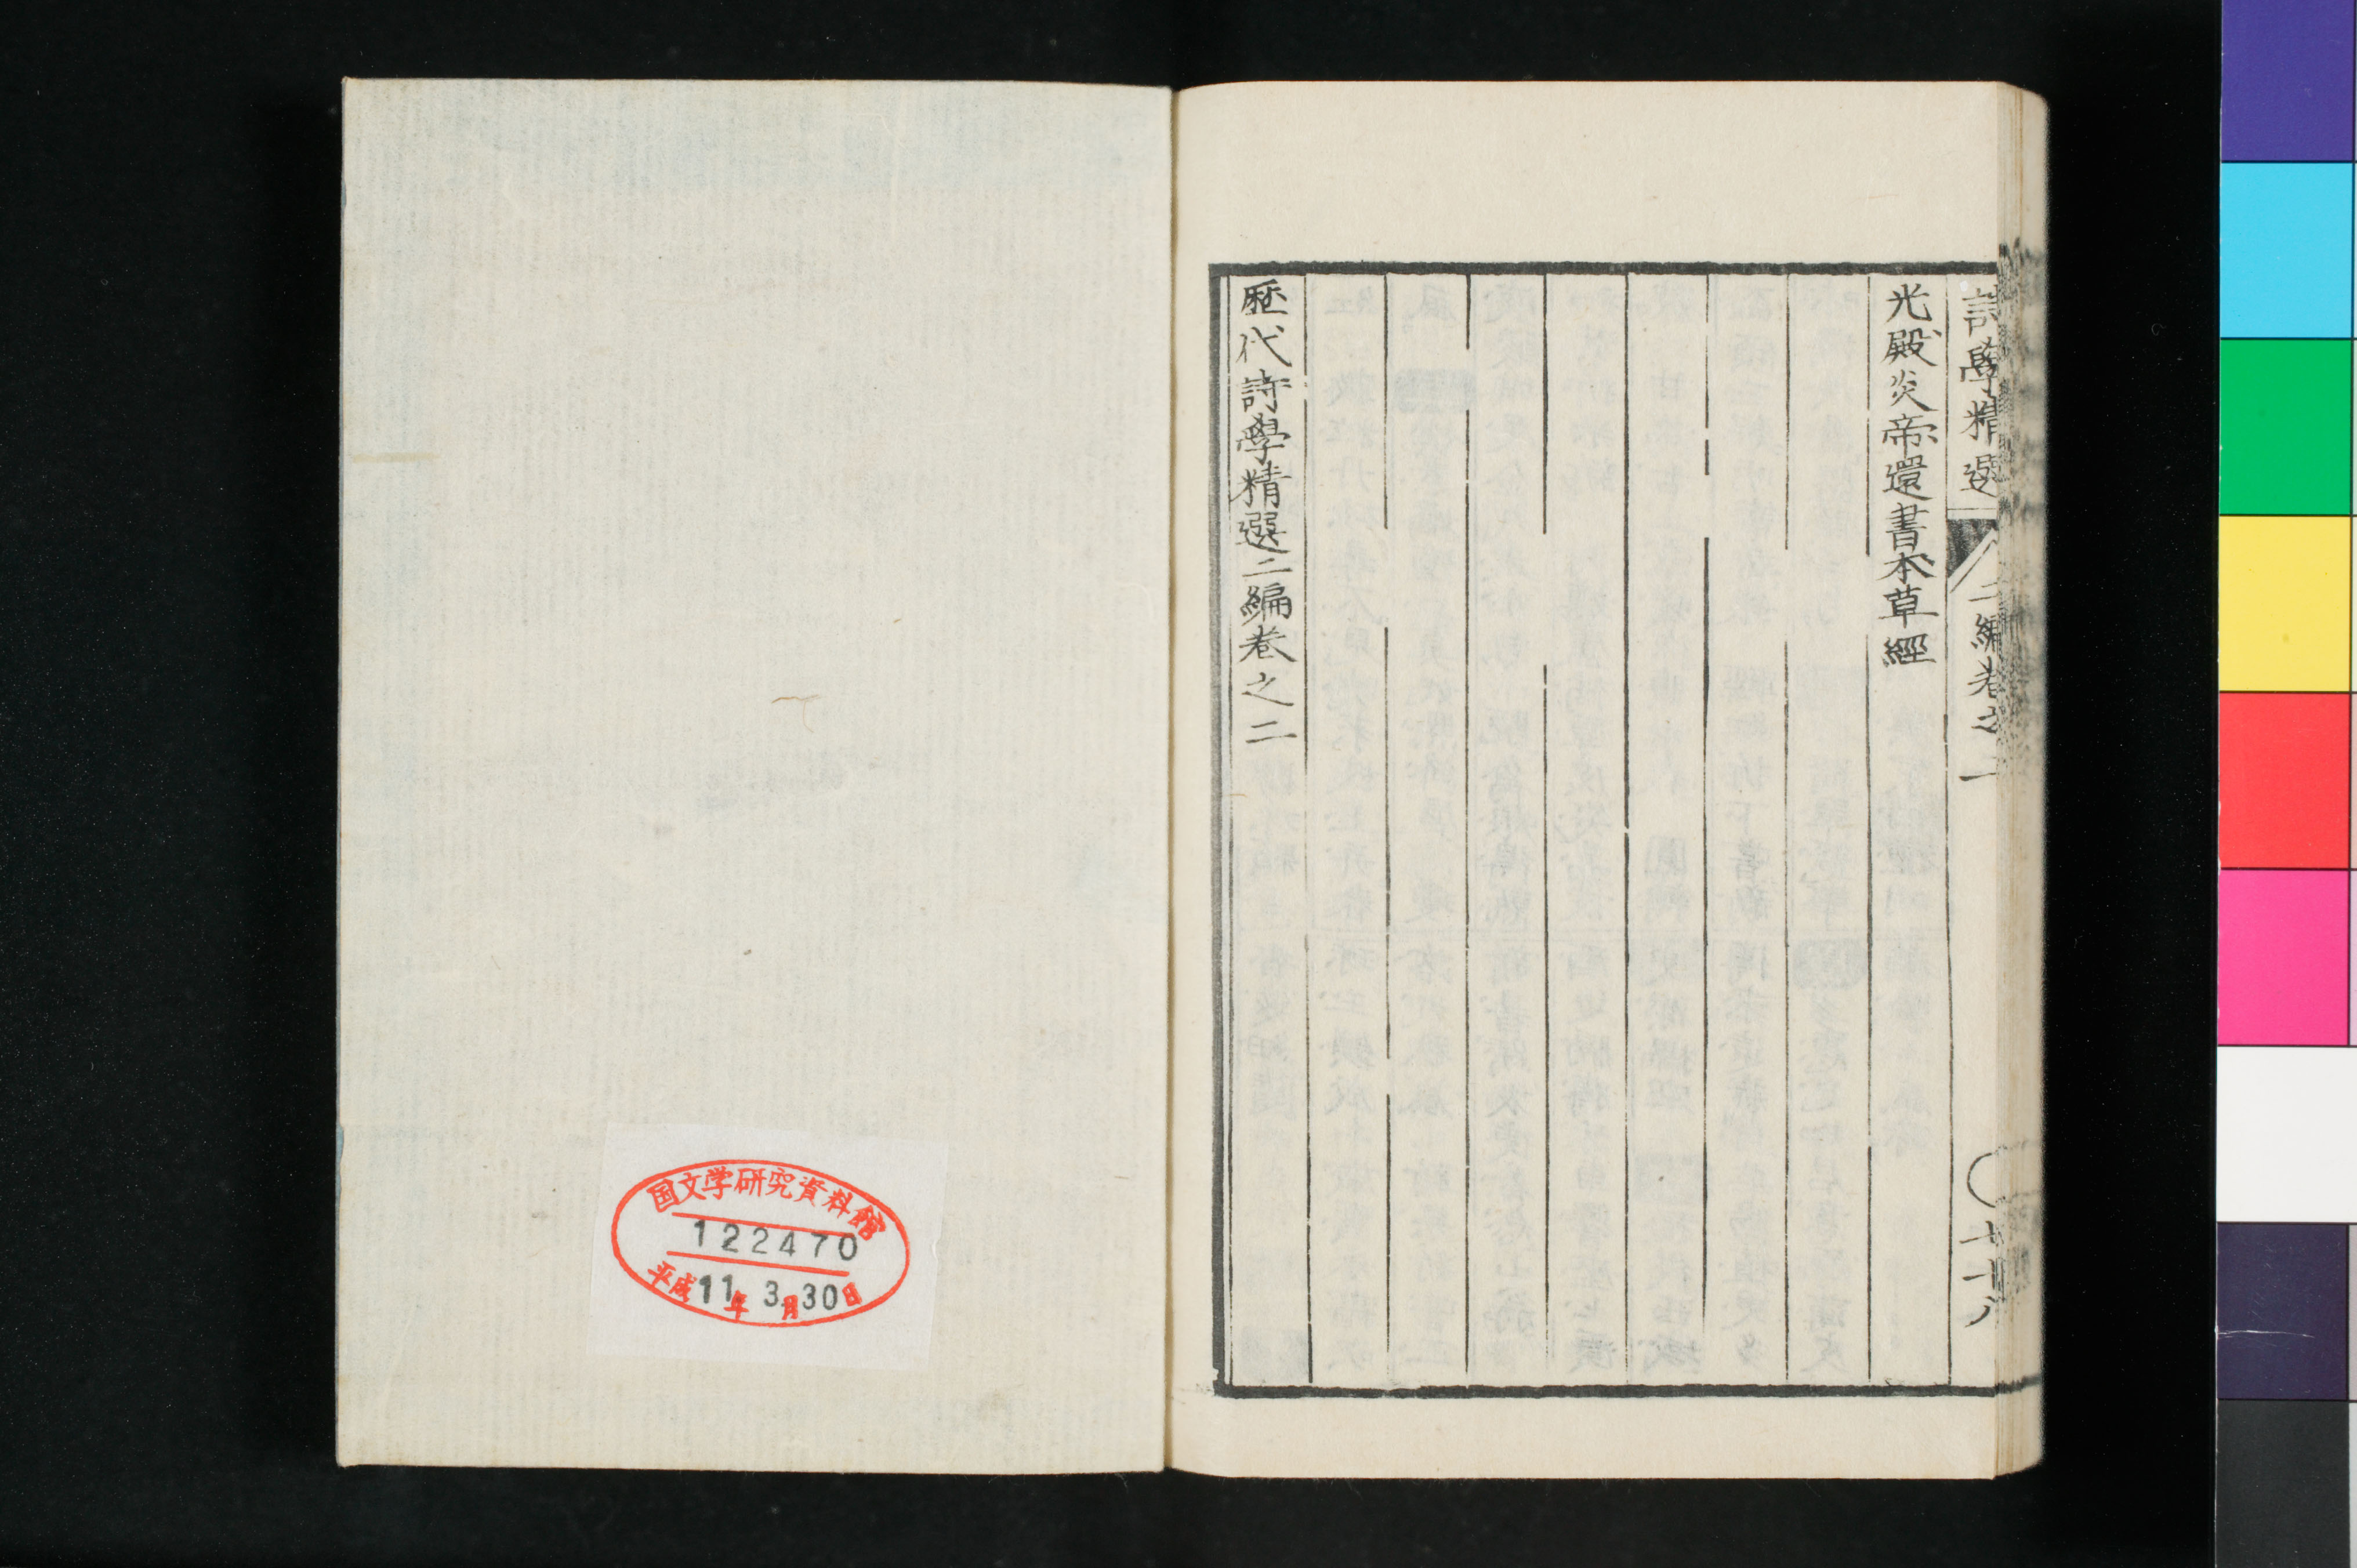 詩學精選
二編卷之二
七十八
光殿炎帝還書本草經
歴代詩學精選二編卷之二
国文学研究資料館
122470
平成11年3月30日